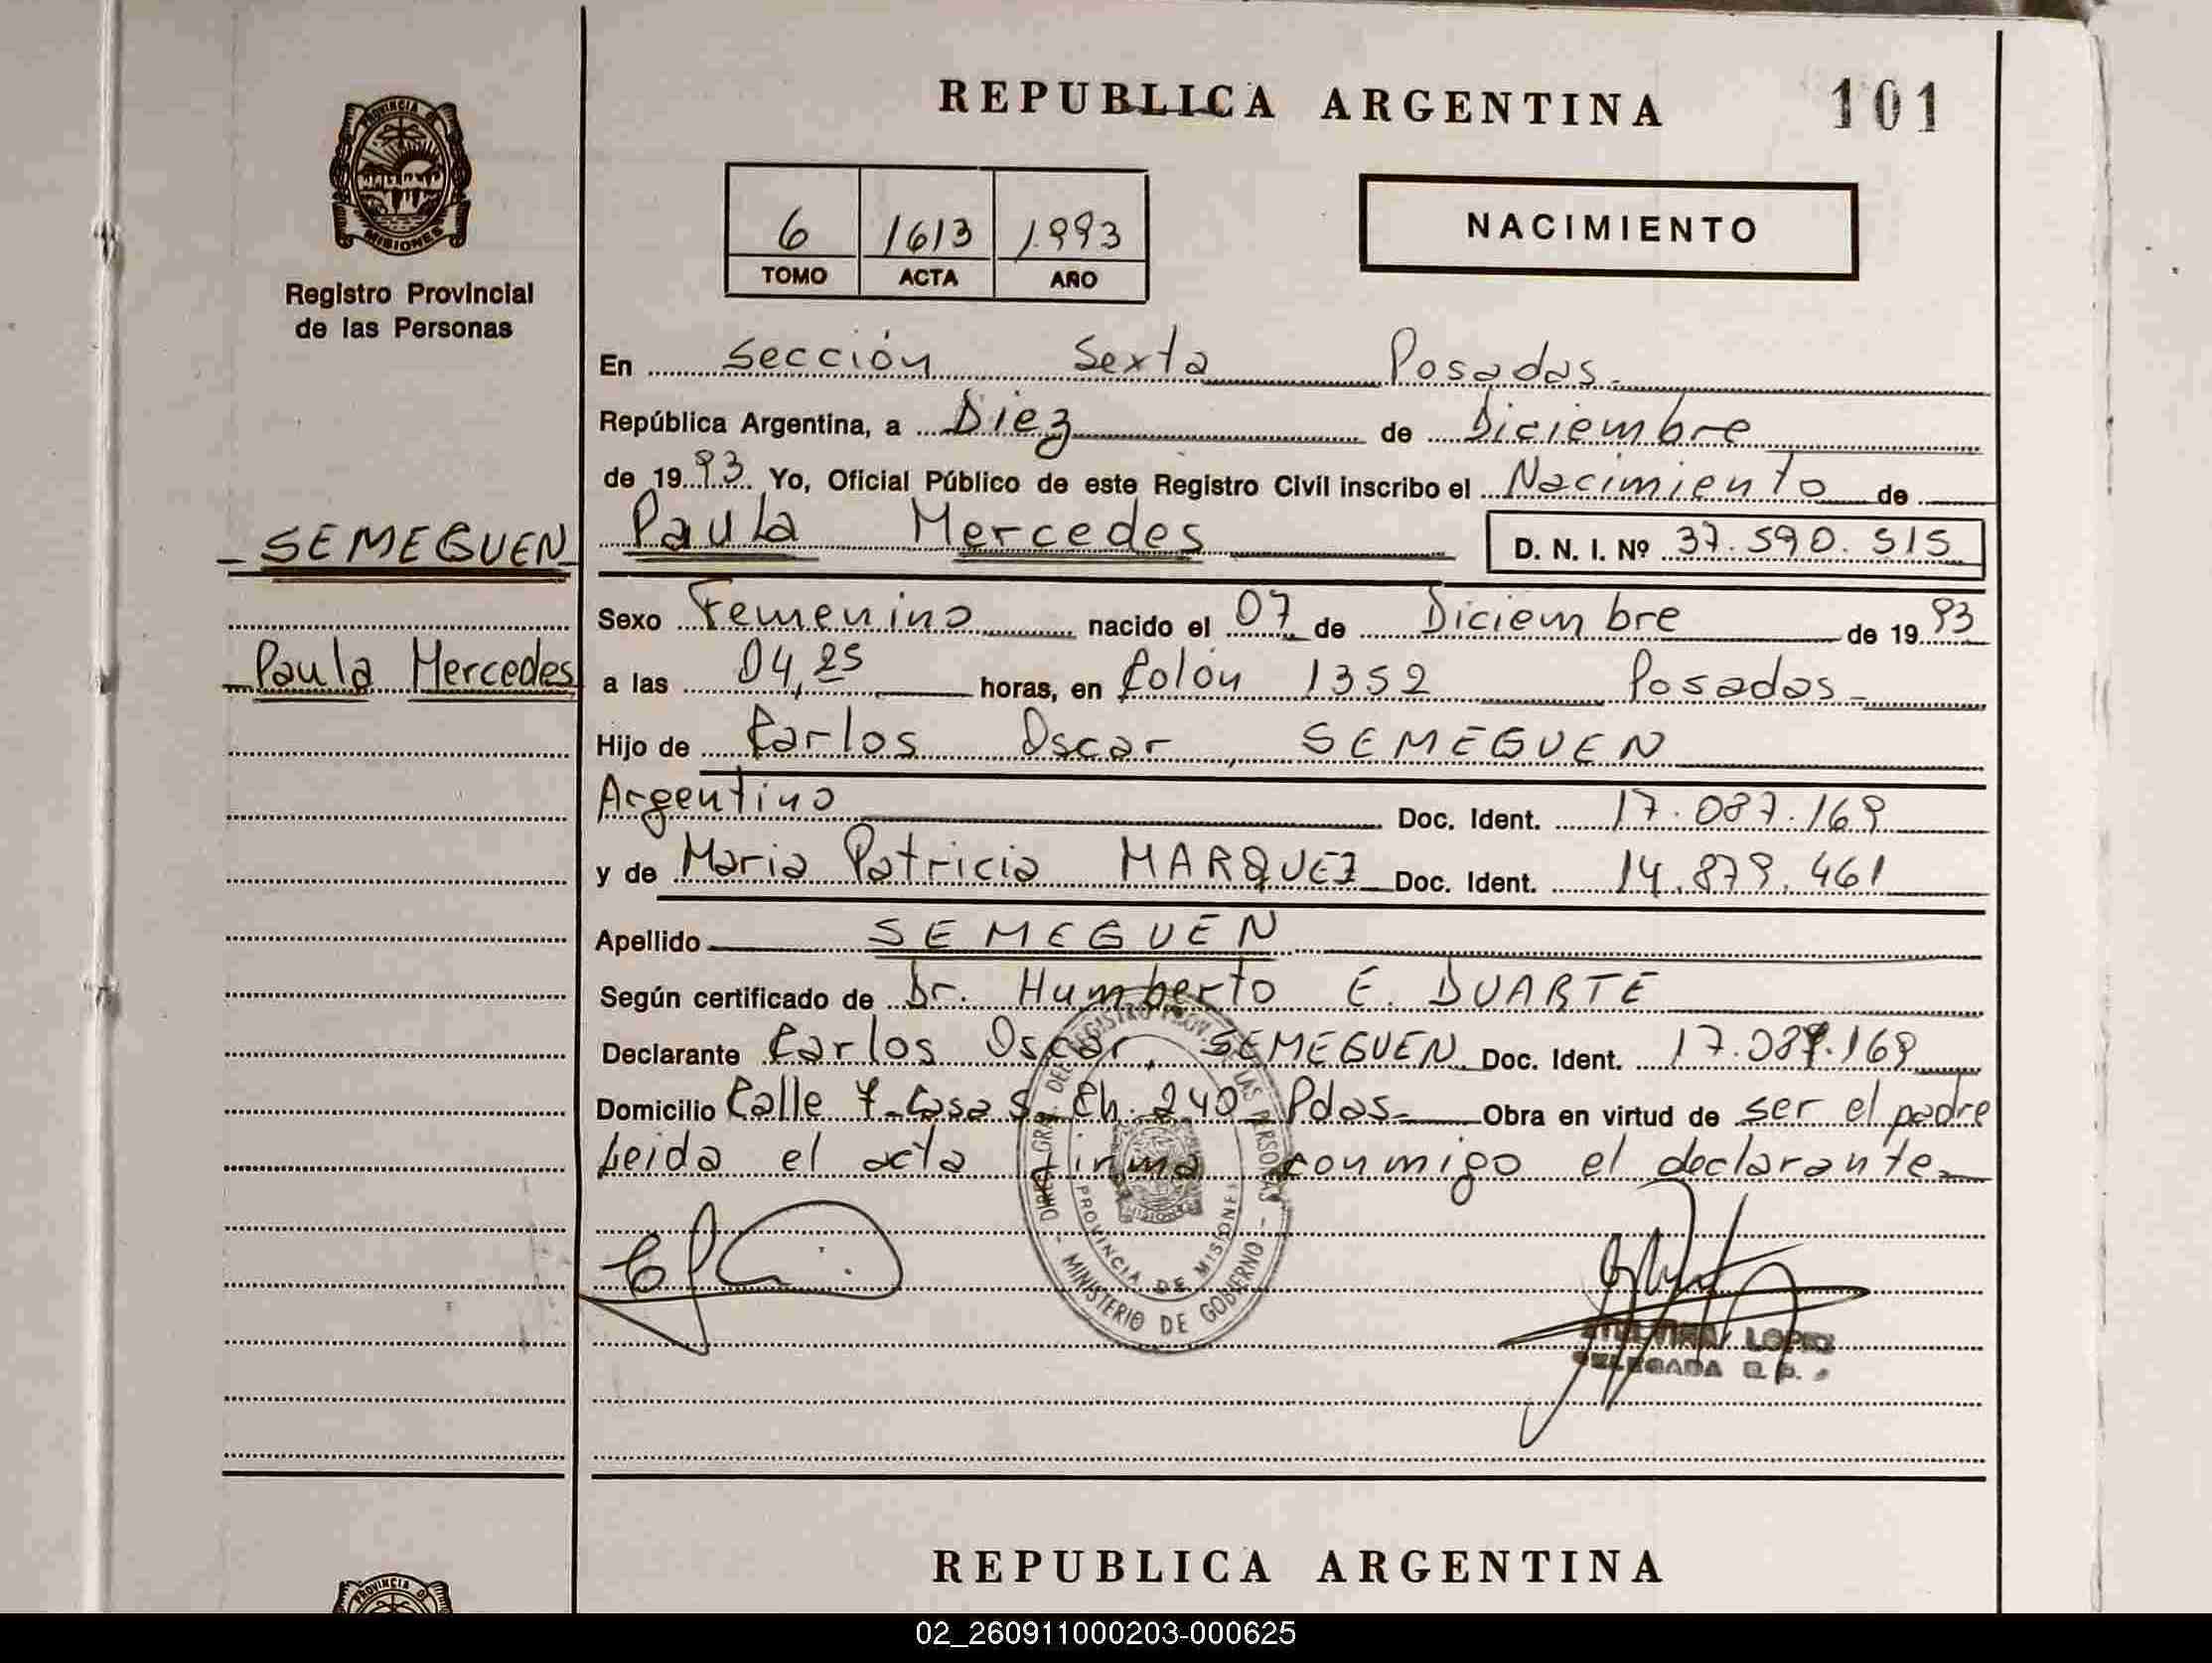 REPUBLICA ARGENTINA 101
PROVINCIA DE
MISIONES
Registro Provincial
de las Personas
6 1613 1993
TOMO ACTA AÑO
NACIMIENTO
En Sección Sexta Posadas.
República Argentina, a Diez de Diciembre
de 1993. Yo, Oficial Público de este Registro Civil inscribo el Nacimiento de
SEMEGUEN
Paula Mercedes
D. N. I. Nº 37.590.515
Sexo Femenino nacido el 07 de Diciembre de 1993
Paula Mercedes
a las 04,25 horas, en Colón 1352 Posadas
Hijo de Carlos Oscar, SEMEGUEN
Argentino Doc. Ident. 17.087.169
y de Maria Patricia MARQUEZ Doc. Ident. 14.879.461
Apellido SEMEGUEN
Según certificado de Dr. Humberto E. DUARTE
Declarante Carlos Oscar, SEMEGUEN Doc. Ident. 17.087.169
Domicilio Calle 7 Casa Ch. 240 Pdas. Obra en virtud de ser el padre
Leida el acta firma conmigo el declarante
PROVINCIA DE MISIONES
MINISTERIO DE GOBIERNO
LOPEZ
DELEGADA R. P.
REPUBLICA ARGENTINA
PROVINCIA DE
02_260911000203-000625